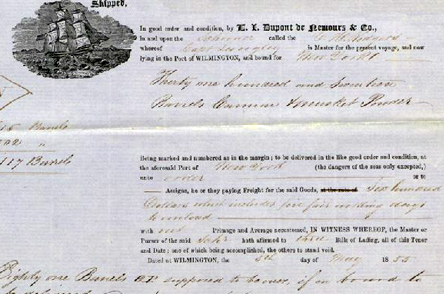 Shipped,
In good order and condition, by E. I. Dupont de Nemours & Co.,
in and upon the Schooner called the
whereof Capt is Master for the present voyage, and now
lying in the Port of WILMINGTON, and bound for New York
Thirty one hundred and Seventeen
Barrels Cannon & musket Powder
Barels
117 Barels
Being marked and numbered as in the margin; to be delivered in the like good order and condition, at
the aforesaid Port of New York (the dangers of the seas only excepted,)
unto order or to
Assigns, he or they paying Freight for the said Goods, at the rate of Two hundred
Dollars which includes five working days
to unload
with out Primage and Average accustomed, IN WITNESS WHEREOF, the Master or
Purser of the said Schr hath affirmed to three Bills of Lading, all of this Tenor
and Date; one of which being accomplished, the others to stand void.
Dated at WILMINGTON, the 5th day of May 1855
Eighty one Barels supposed to be on board to